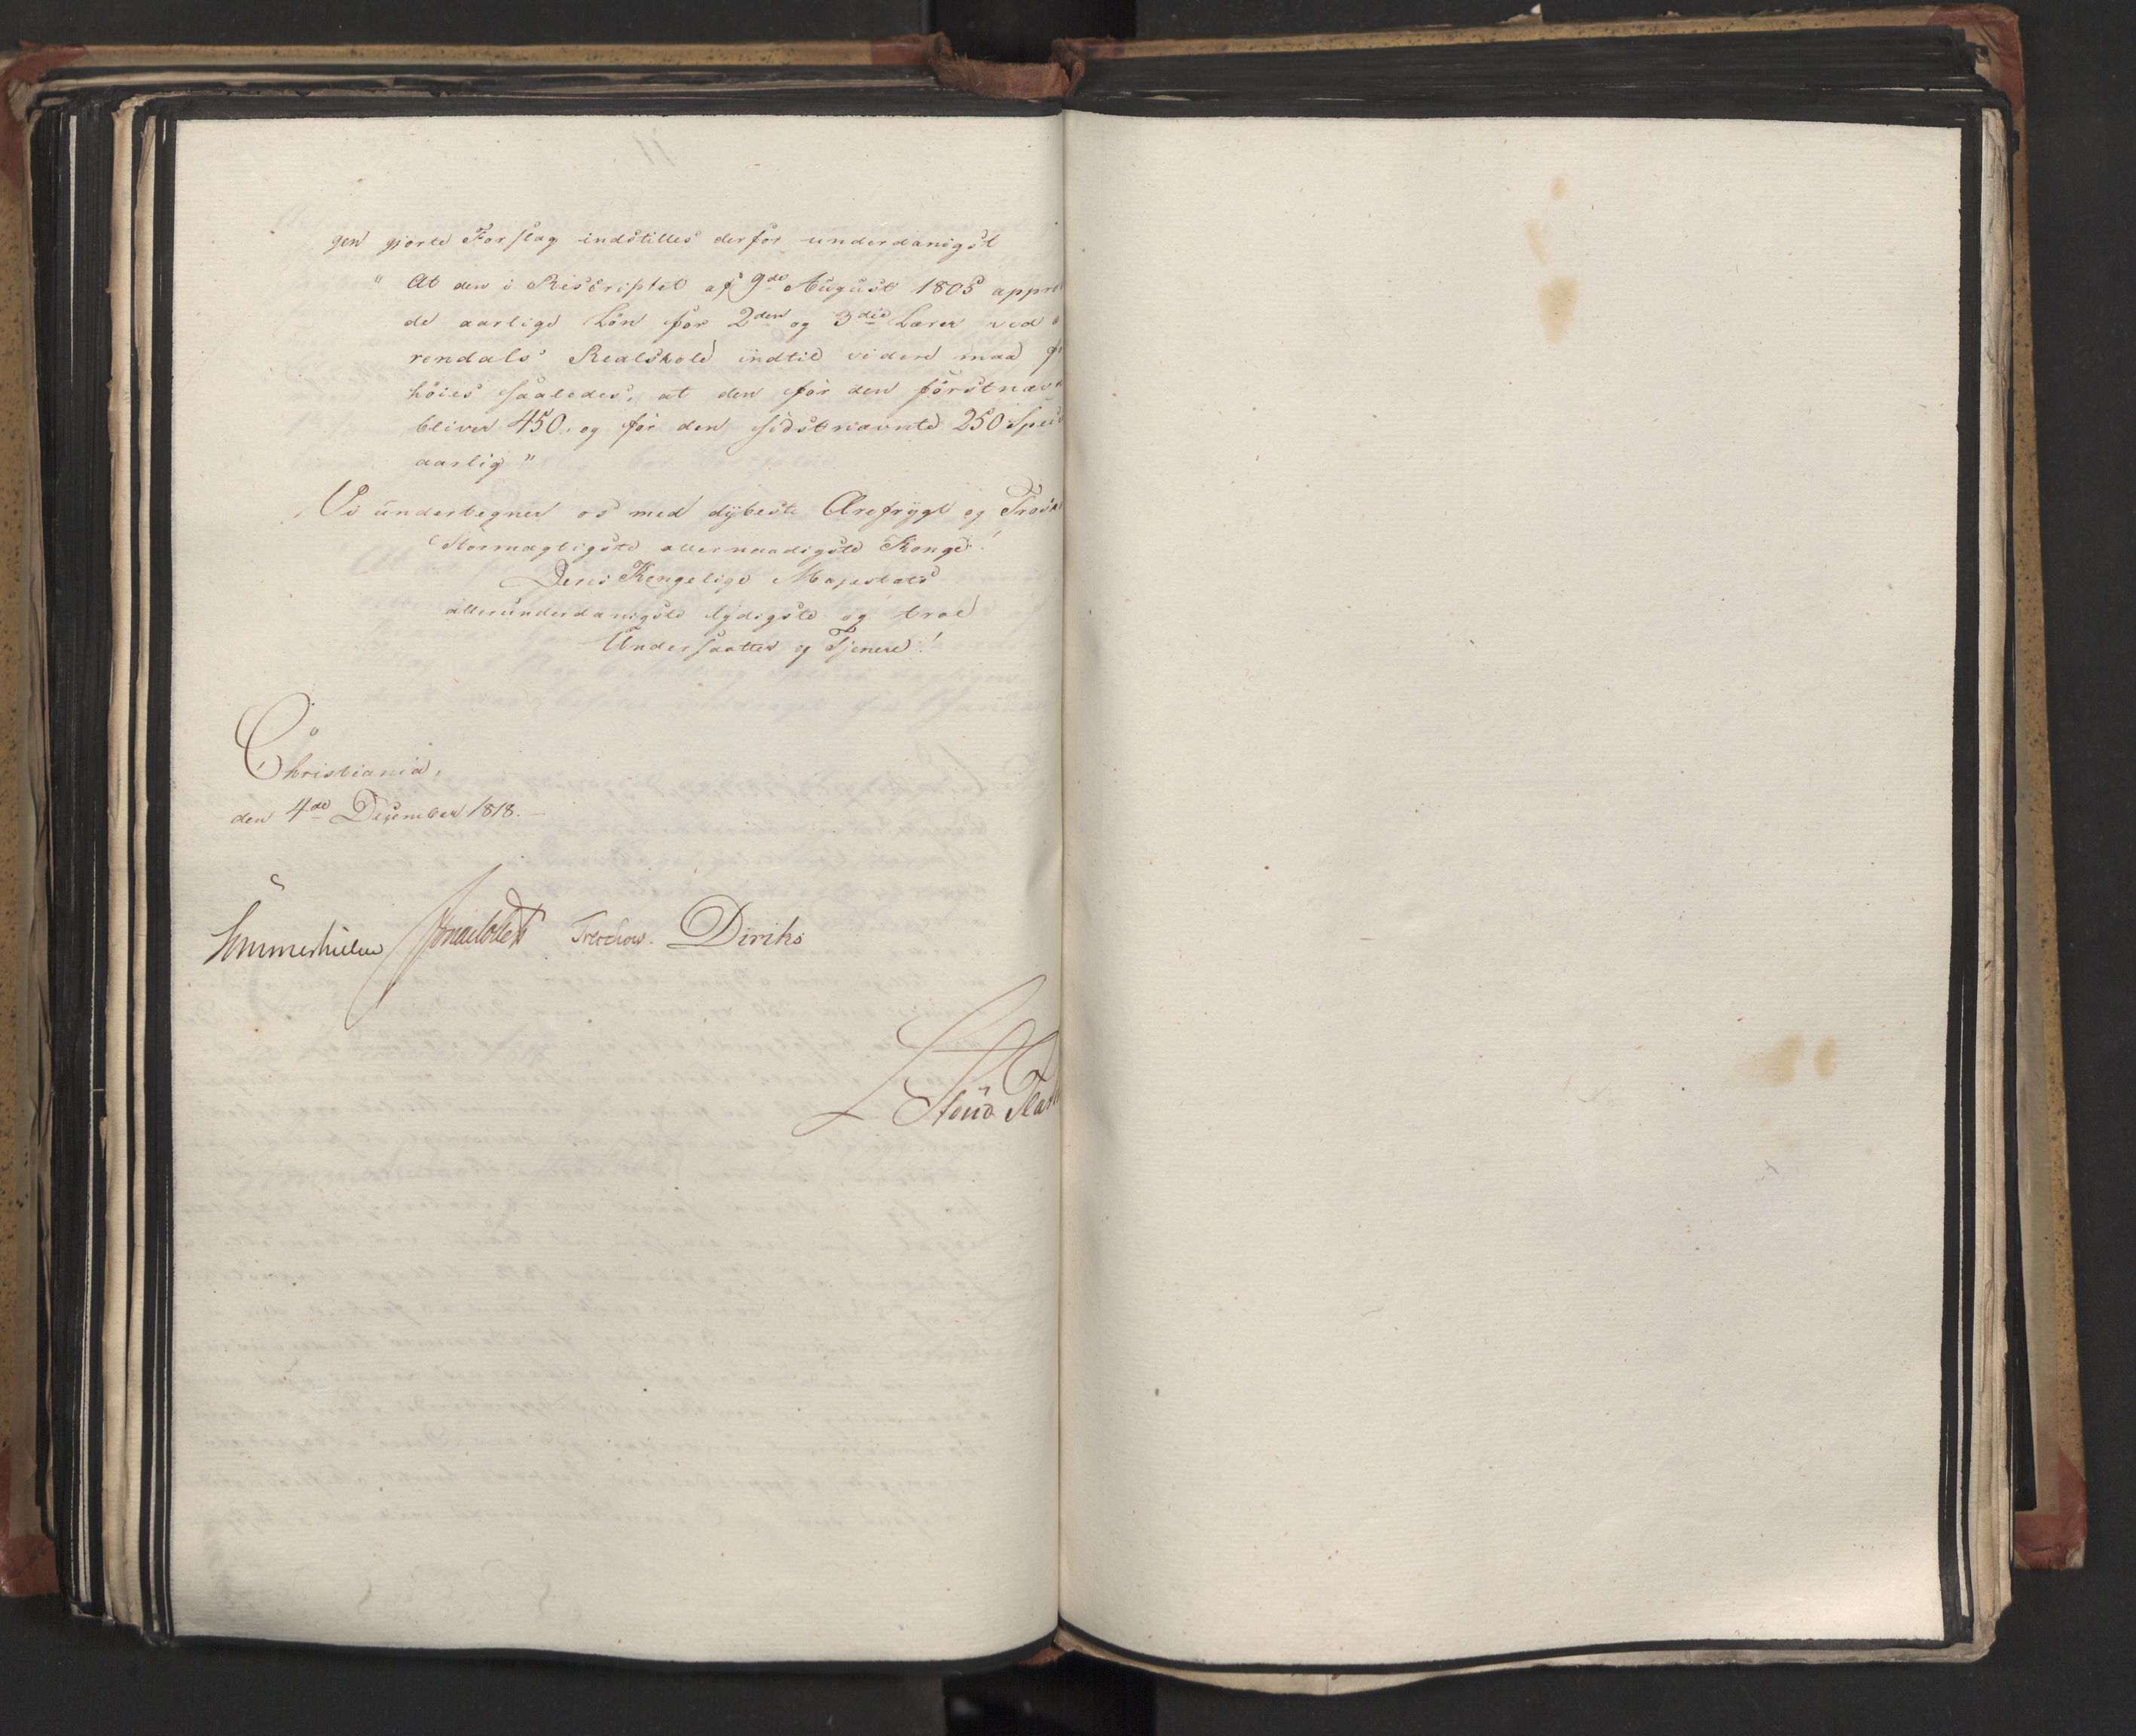 gen gjorte Forslag indstilles derfor underdanigst
" At den i Rescriptet af 9de August 1805 appro
de aarlige Lön for 2den og 3die Lærer ved
rendals Realskole indtil videre maa
höies saaledes, at den for den förstnæv
bliver 450, og for den sidstnævnte 250 Speci
aarlig "
Vi undertegner os med dybeste Ærefrygt og Trosk
Stormægtigste allernaadigste Konge!
Deres Kongelige Majestæts
allerunderdanigste lydigste og troe
Undersaatter og Tjenere!
Christiania,
den 4de December 1818.
Sommerhielm Treschow. Diriks